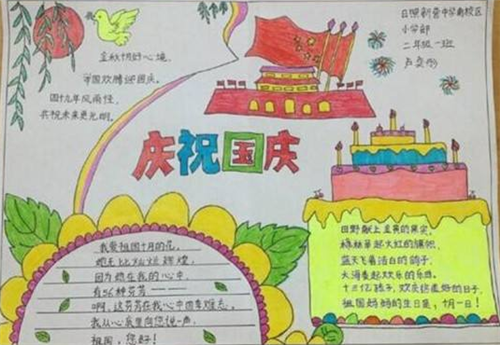 金秋恰好心境,
举国欢腾迎国庆。
国十九年风雨恒,
共祝未来更光明。
日照新营中华南校区
小学部
二年级一班
庆祝国庆
我爱祖国十月的花,
因为栽在我的心中
有56种芬芳——
啊,这芬芳在我心中
我从心底里向您说一声,
祖国,您好!
田野献上金黄的果实,
蓝天飞着洁白的鸽子,
大海奏起欢乐的乐曲,
十三亿孩子,欢庆这美好的日子,
祖国妈妈的生日是,十月一日!